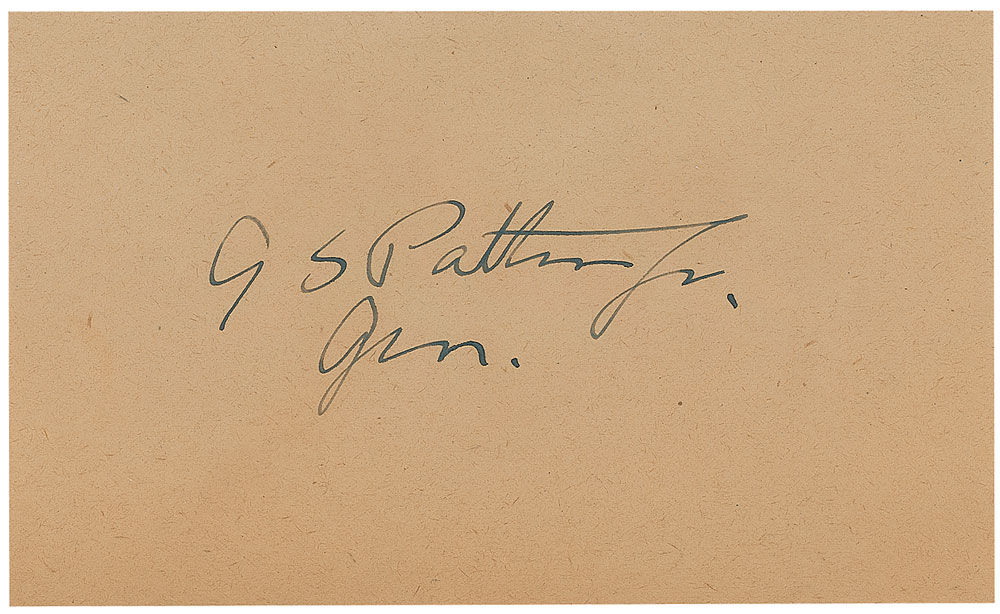 G S Patton Jr.
Gen.